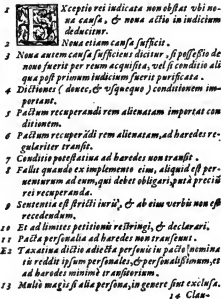 1 Exceptio rei iudicata non obstat vbi no-
ua causa, & noua actio in iudicium
deducitur.
2 Noua etiam causa sufficit.
3 Noua autem causa sufficiens dicitur, si possessio de
nouo fuerit per reum acquisita, vel si conditio ali
qua post primum iudicium fuerit purificata.
4 Dictiones (donec, & vsquequo) conditionem im-
portant.
5 Pactum recuperandi rem alienatam importat con
ditionem.
6 Pactum recuperādi rem alienatam, ad haredes re-
gulariter transit.
7 Conditio potestatiua ad haredes non transit.
8 Fallit quando ex implemento eius, aliquid est per-
uenturum ad eum, qui debet obligari, puta preciū
rei recuperanda.
9 Sententia est stricti iuris, & ab eius verbis non est
recedendum.
10 Et ad limites petitionis restringi, & declarari.
11 Pacta personalia ad haredes non transeunt.
12 Taxatiua dictio adiecta personis in pacto nomina
tis reddit ipsum personales, & personalissimum, et
ad haredes minimè transitorium.
13 Multò magis si alia persona, in genere sint exclusa.
14 Clau-